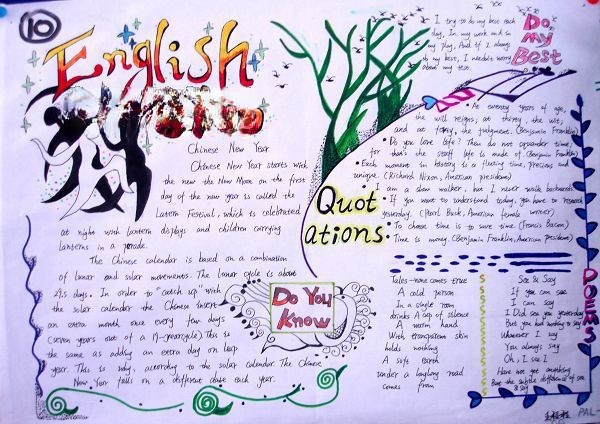 10
English
Chinese New Year
Chinese New Year starts with
the new the New Moon on the first
day of the new year is called the
Latern Festival, which is celebrated
at night with lantern displays and children carrying
lanterns in a parade.
The Chinese calendar is based on a combination
of lunar and solar movements. The lunar cycle is about
29.5 days. In order to "catch up" with
the solar calendar the Chinese insert
an extra month once every few days
(seven years out of a 19-yearcycle) This is
the same as adding an extra day on leap
year. This is why, according to the solar calendar. The Chinese
New Year falls on a different date each year.
Do You
Know
I try to do my best each
day, In my work and in
my play, And if I always
do my best, I needn't worry
about my test.
Do
My
Best
Quot
ations:
At twenty years of age,
the will reigns; at thirty, the wit;
and at forty, the judgment. (Benjamin Franklin)
Do you love life? Then do not squander time;
for that's the stuff life is made of. (Benjamin Franklin)
Each moment in history is a fleeting time, precious and
unique. (Richard Nixon, American president)
I am a slow walker, but I never walk backwards.
If you want to understand today, you have to research
yesterday. (Pearl Buck, American female writer)
To choose time is to save time. (Francis Bacon)
Time is money. (Benjamin Franklin, American president)
POEMS
Tales-none comes true
A cold person
In a single room
drinks A cup of silence
A warm hand
With transparen skin
holds nothing
A soft earth
under a laughing road
comes from
See & Say
If you can see
I can say
I Did see you yesterday
But you had nothing to say
Whatever I say
You always say
Oh, I see!
Have not got anything
But the subtle difference of see
& say
PAL-